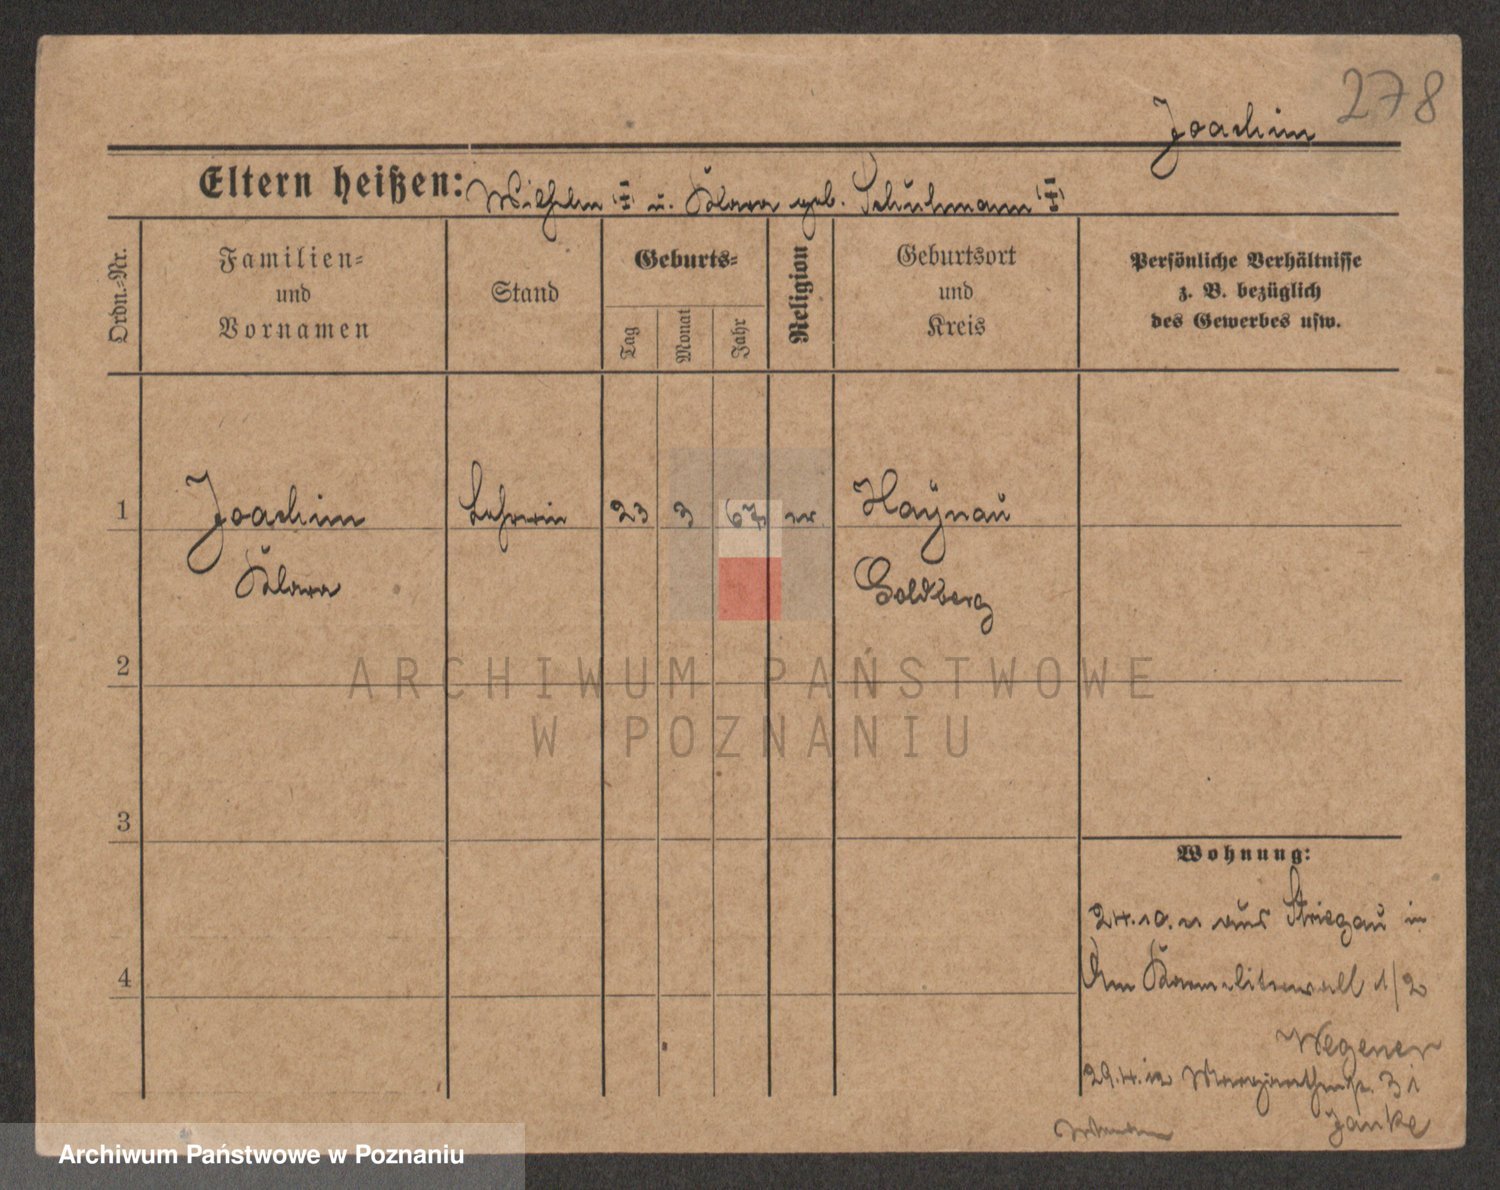 278
Joachim
Eltern heißen: Wilhelm (†) u. Klara geb. Schuhmann (†)
Ordn.-Nr.
Familien-
und
Vornamen
Stand
Geburts-
Tag
Monat
Jahr
Religion
Geburtsort
und
Kreis
Persönliche Verhältnisse
z. B. bezüglich
des Gewerbes usw.
1 Joachim Lehrerin 23 3 67 ev Haynau
Klara Goldberg
2
ARCHIWUM PAŃSTWOWE
W POZNANIU
3
4
Wohnung:
24.10.11 aus Striegau in
Am Karmeliterwall 1/2
Wegener
29.4.12 31
Janke
Archiwum Państwowe w Poznaniu